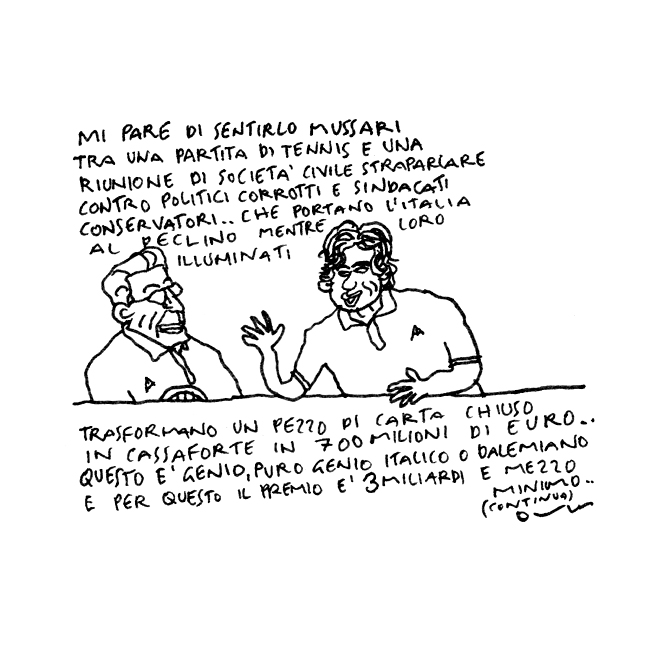 MI PARE DI SENTIRLO MUSSARI
TRA UNA PARTITA DI TENNIS E UNA
RIUNIONE DI SOCIETA' CIVILE STRAPARLARE
CONTRO POLITICI CORROTTI E SINDACATI
CONSERVATORI.. CHE PORTANO L'ITALIA
AL DECLINO MENTRE LORO
ILLUMINATI
TRASFORMANO UN PEZZO DI CARTA CHIUSO
IN CASSAFORTE IN 700 MILIONI DI EURO..
QUESTO E' GENIO, PURO GENIO ITALICO O DALEMIANO
E PER QUESTO IL PREMIO E' 3 MILIARDI E MEZZO
MINIMO..
(CONTINUA)